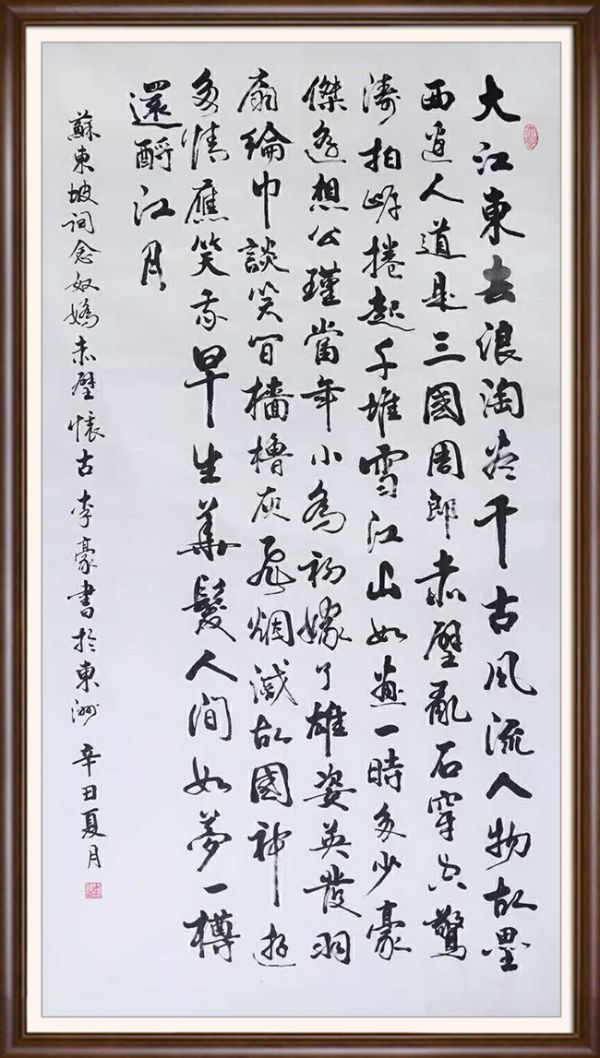 大江東去浪淘盡千古風流人物故壘
西邊人道是三國周郎赤壁亂石穿空驚
濤拍岸捲起千堆雪江山如畫一時多少豪
傑遙想公瑾當年小喬初嫁了雄姿英發羽
扇綸巾談笑間檣櫓灰飛烟滅故國神遊
多情應笑我早生華髮人間如夢一樽
還酹江月
蘇東坡詞念奴嬌赤壁懷古李豪書於東洲 辛丑夏月